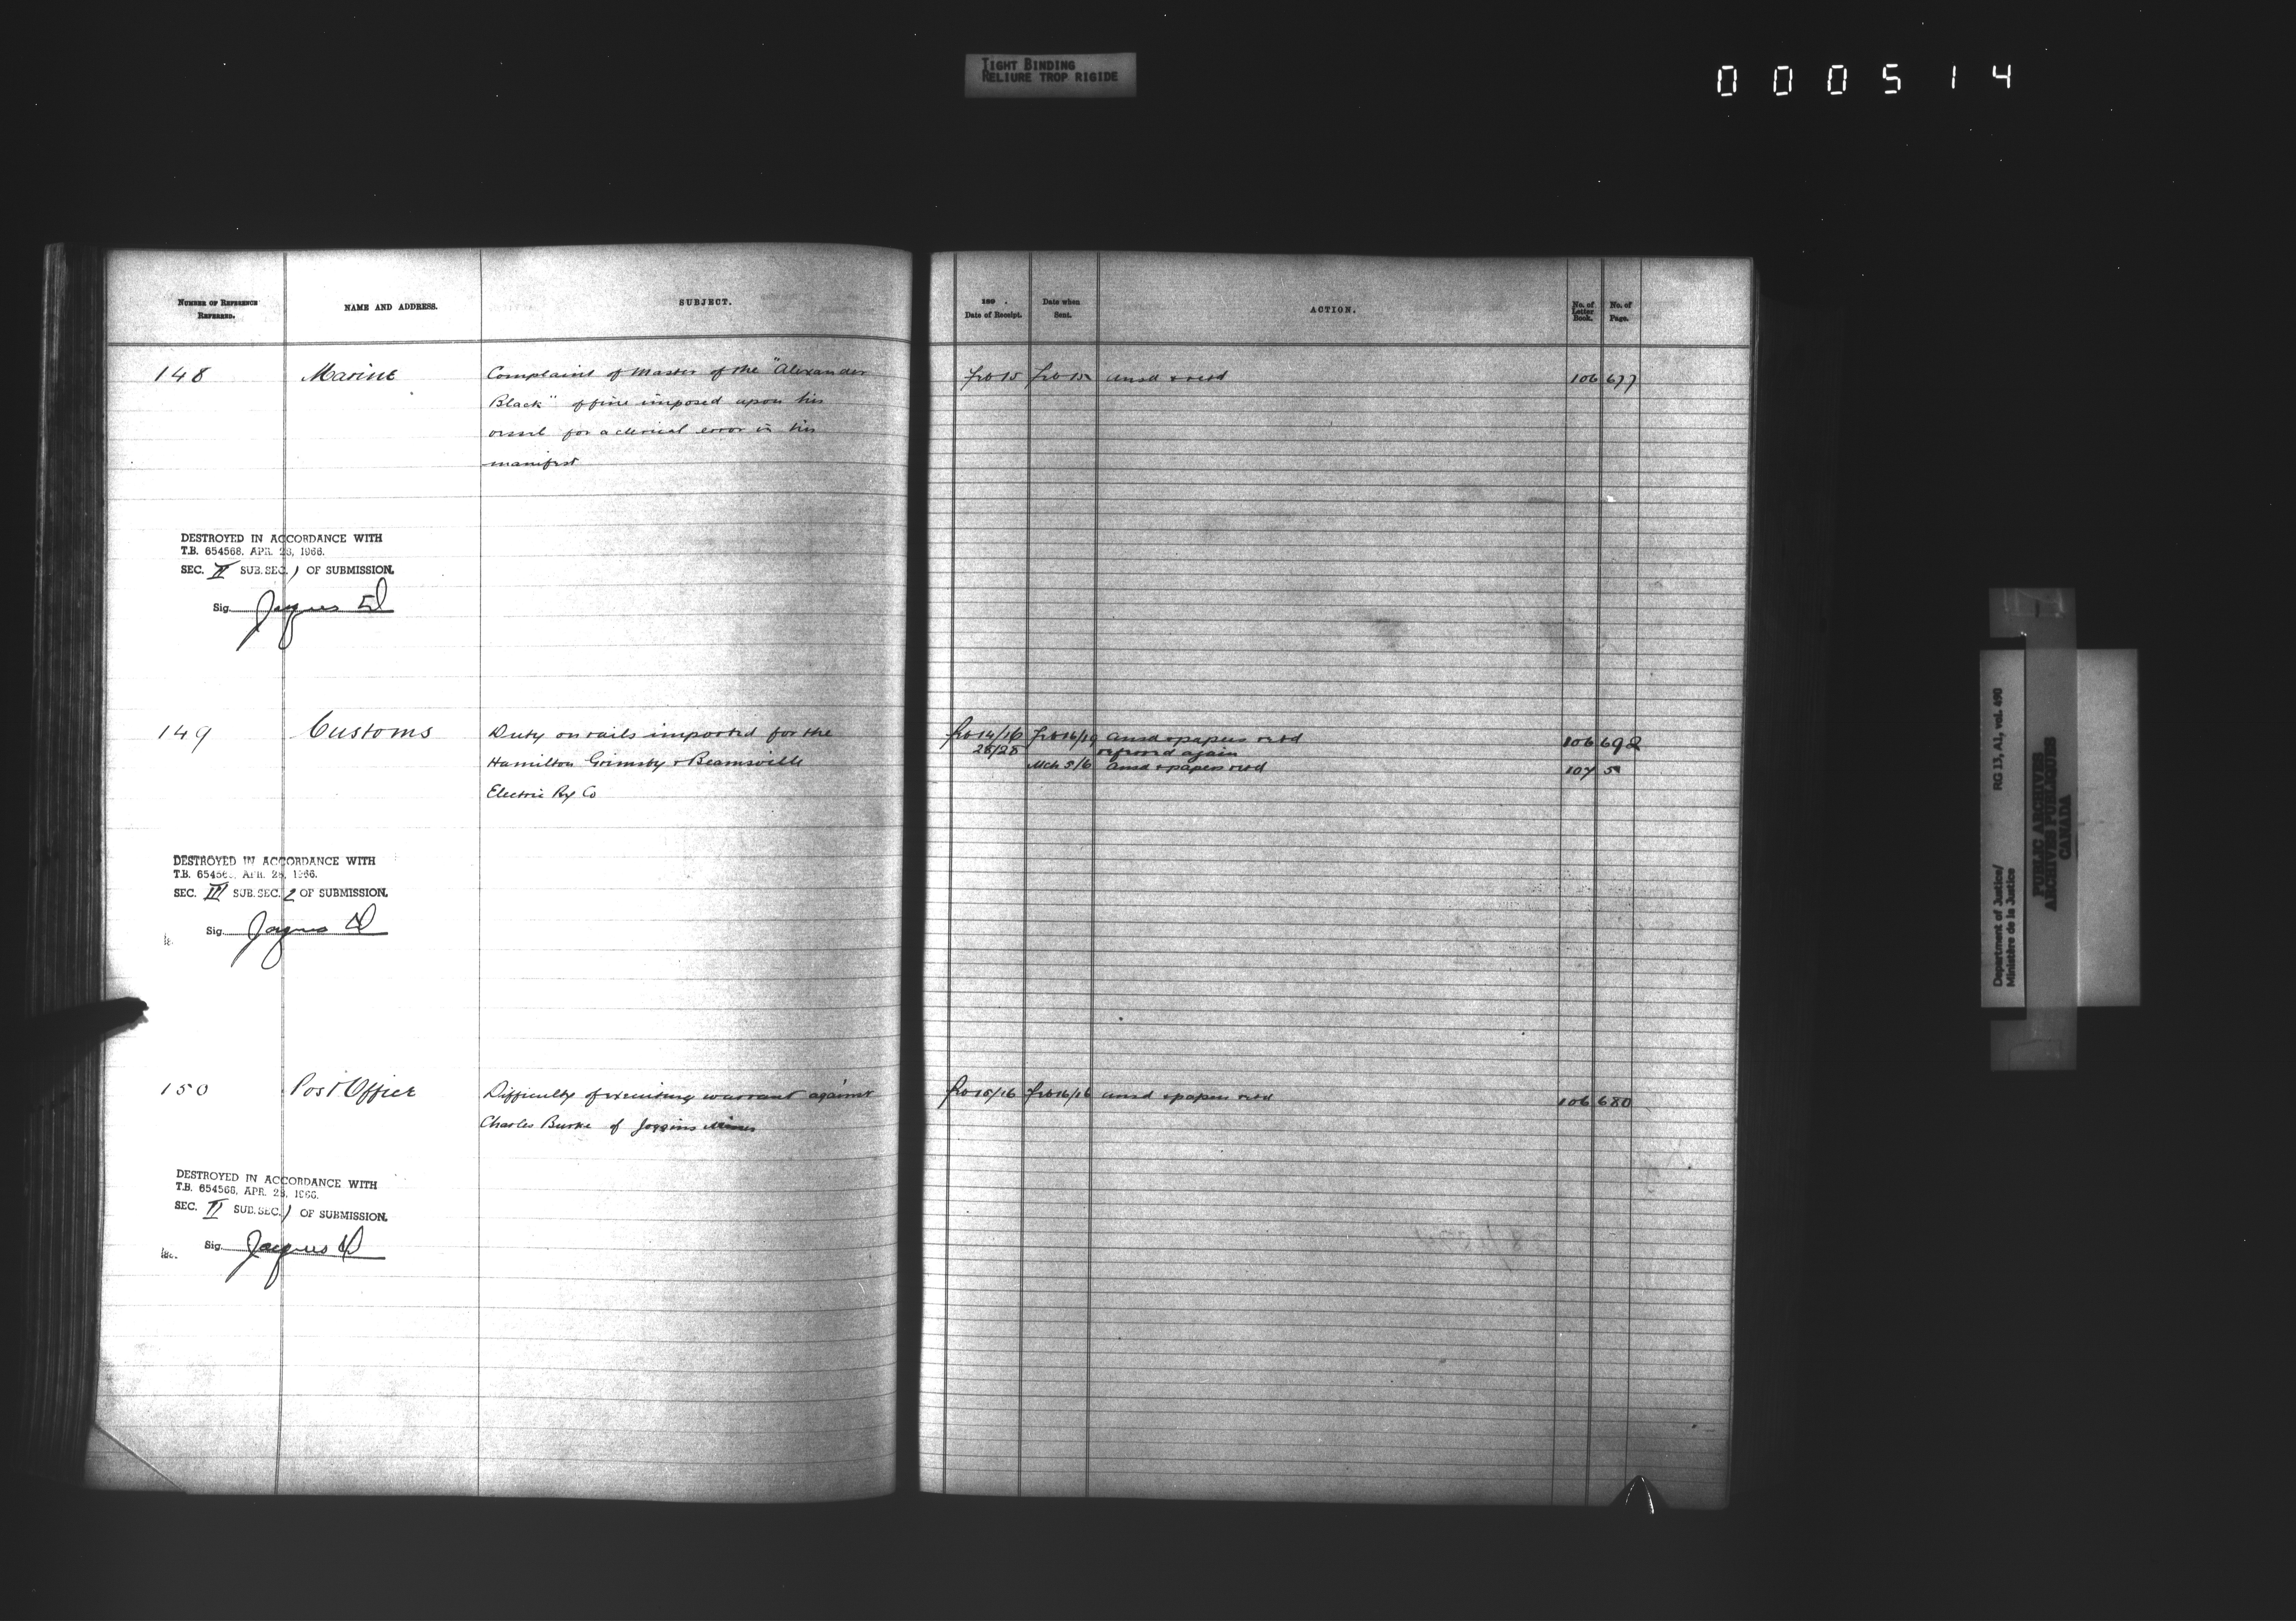 TIGHT BINDING
RELIURE TROP RIGIDE
000514
NUMBER OF REFERENCE REFERRED.
NAME AND ADDRESS.
SUBJECT.
189 .
Date of Receipt.
Date when Sent.
ACTION.
No. of Letter Book.
No. of Page.
148 Marine Complaint of Master of the "Alexander Feb 15 Feb 15 ansd & retd 106 677
Black" of fine imposed upon his
vessel for a clerical error in his
manifest
DESTROYED IN ACCORDANCE WITH
T.B. 654568, APR. 28, 1966.
SEC. II SUB.SEC. 1 OF SUBMISSION.
Sig. Jacques
149 Customs Duty on rails imported for the Feb 14/16 Feb 16/19 Ansd & papers retd 106 692
28/28 referred again
Hamilton Grimsby & Beamsville Mch 5/6 Ansd & papers retd 107
Electric Ry Co
DESTROYED IN ACCORDANCE WITH
T.B. 654568, APR. 28, 1966.
SEC. III SUB.SEC. 2 OF SUBMISSION.
Sig. Jacques
150 Post Office Difficulty of executing warrant against Feb 15/16 Feb 16/16 ansd & papers retd 106 680
Charles Burke of Joggins Mines
DESTROYED IN ACCORDANCE WITH
T.B. 654568, APR. 28, 1966.
SEC. II SUB.SEC. 1 OF SUBMISSION.
Sig. Jacques
Department of Justice/ RG 13, A1, vol. 490
Ministère de la Justice
PUBLIC ARCHIVES
ARCHIVES PUBLIQUES
CANADA